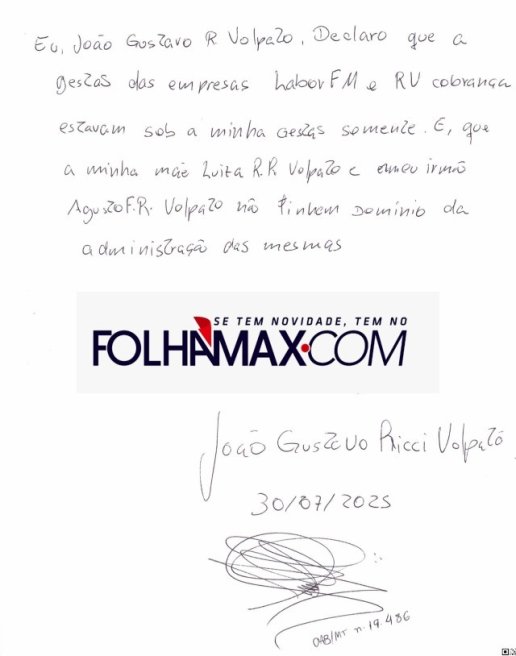 Eu, João Gustavo R Volpato, Declaro que a
gestão das empresas Labor FM e RV cobrança
estavam sob a minha Gestão somente. E, que
a minha mãe Luiza R.R Volpato e o meu irmão
Agusto F.R. Volpato não tinhem Domínio da
administração das mesmas
SE TEM NOVIDADE, TEM NO
FOLHAMAX.COM
João Gustavo Ricci Volpato
30/07/2025
OAB/MT n. 19.486